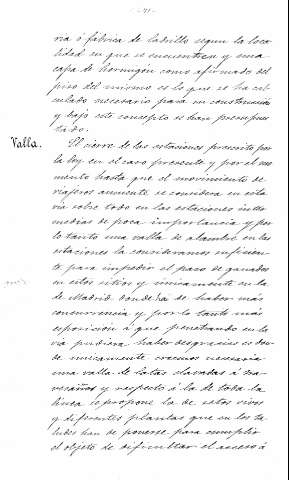 - 71 -
ria ó fábrica de ladrillo segun la loca
lidad en que se encuentren y una
capa de hormigon como afirmado del
piso del mismo es lo que se ha cal-
culado necesario para su construccion
y bajo este concepto se han presupues
tado.
Valla. El cierre de las estaciones prescrito por
la ley en el caso presente y por el mo
mento hasta que el movimiento de
viajeros aumente, se considera en esta
via sobre todo en las estaciones inter
medias de poca importancia y por
lo tanto una valla de alambre en las
estaciones la consideramos suficien-
te para impedir el paso de ganados
en estos sitios y unicamente en la
de Madrid donde ha de haber más
concurrencia y por lo tanto más
exposicion á que penetrando en la
via pudiera haber desgracias es don-
de unicamente creemos necesaria
una valla de latas clavadas á tra-
vesaños y respecto á la de toda la
linea se propone la de setos vivos
y diferentes plantas que en los ta
ludes han de ponerse para cumplir
el objeto de dificultar el acceso á